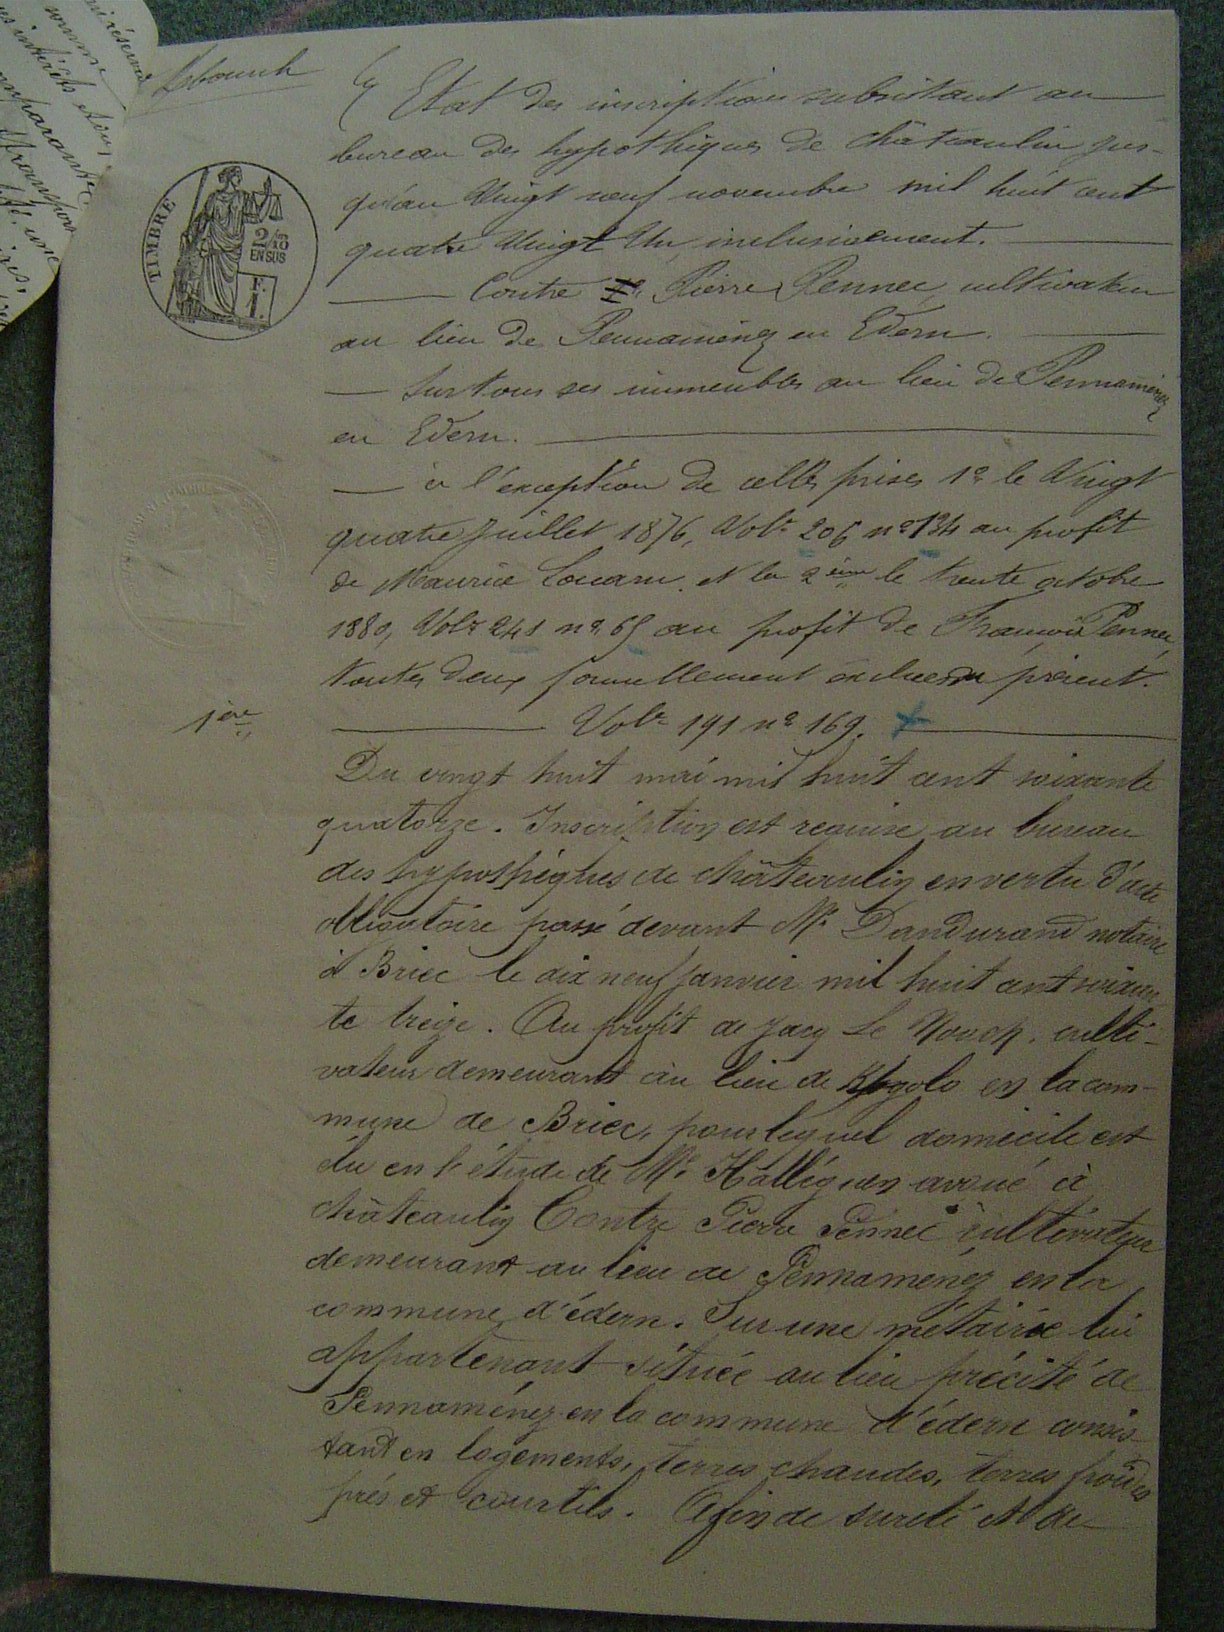 Etat des inscriptions subsistant au
bureau des hypothèques de châteaulin jus-
qu'au Vingt neuf novembre mil huit cent
quatre Vingt Un, inclusivement.
TIMBRE
2/10
EN SUS
F.
1.
Contre Pierre Pennec, cultivateur
au lieu de Pennaménez en Edern.
Sur tous ses immeubles au lieu de Pennaménez
en Edern.
à l'exception de celles prises 1º le Vingt
quatre Juillet 1876, Vole 206 nº 134 au profit
de Maurice et la 2ième le trente octobre
1880, Vole 241 nº 65 au profit de François Pennec,
toutes deux formellement exclues du présent.
1ère
Vole 191 nº 169.
Du vingt huit mai mil huit cent soixante
quatorze. Inscription est requise au bureau
des hypothèques de châteaulin en vertu d'acte
obligatoire passé devant Me Dandurand notaire
à Briec le dix neuf Janvier mil huit cent soixan-
te treize. Au profit de Jacq Le culti-
vateur demeurant au lieu de en la com-
mune de Briec, pour lequel domicile est
élu en l'étude de Me Halléguen avoué à
châteaulin Contre Pierre Pennec cultivateur
demeurant au lieu de Pennaménez en la
commune d'édern. Sur une métairie lui
appartenant située au lieu précité de
Pennaménez en la commune d'édern consis-
tant en logements, terres chaudes, terres froides
prés et courtils. Afin de sureté et de